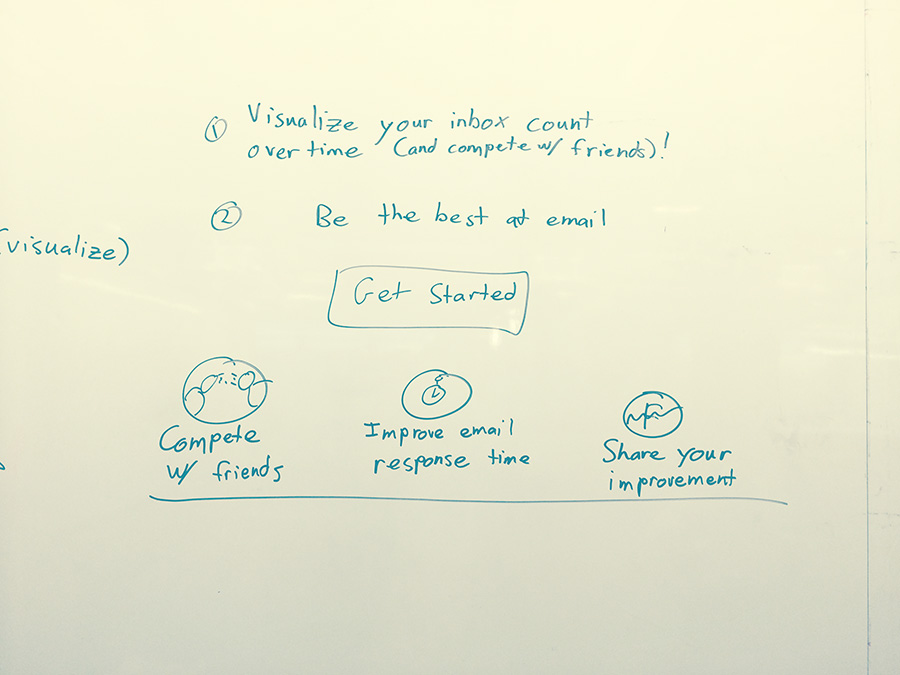 ① Visualize your inbox count
over time (and compete w/ friends)!
② Be the best at email
(visualize)
Get Started
Compete
w/ friends
Improve email
response time
Share your
improvement